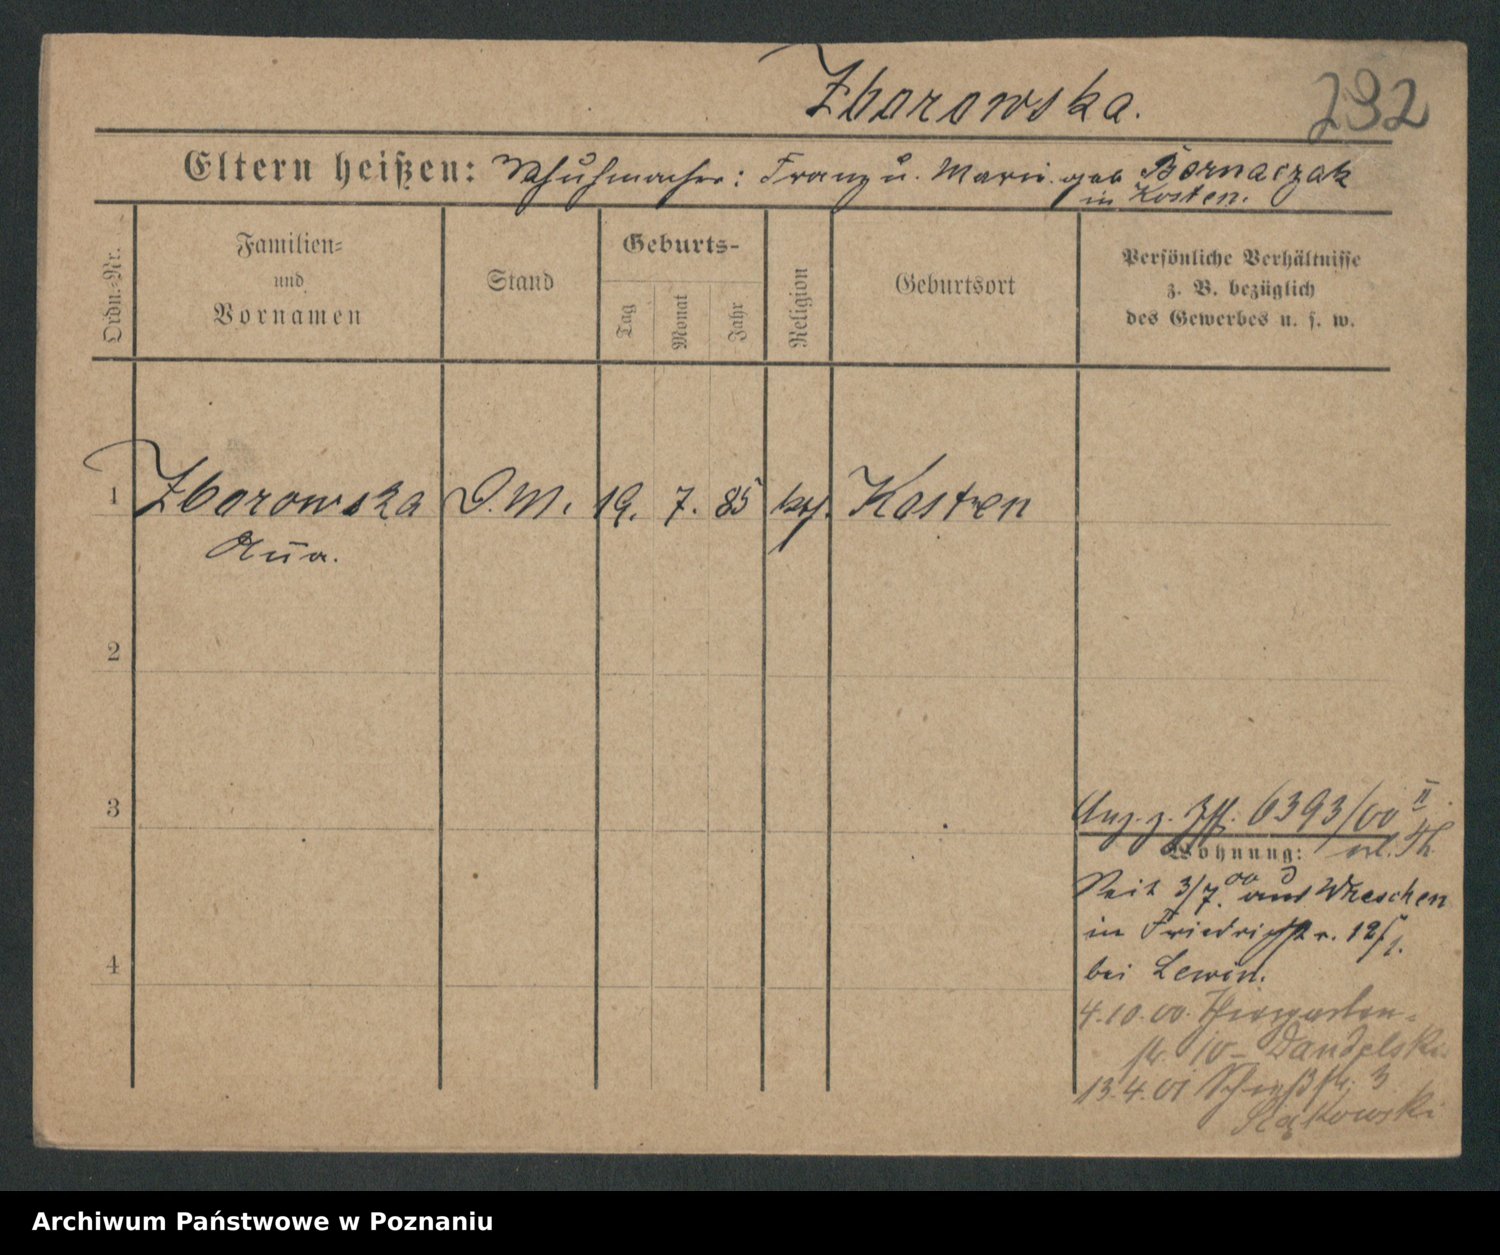 Zborowska.
232
Eltern heißen: Schuhmacher: Franz u. Marie geb Bornaczak
in Kosten.
Ordn.-Nr.
Familien-
und
Vornamen
Stand
Geburts-
Tag
Monat
Jahr
Religion
Geburtsort
Persönliche Verhältnisse
z. B. bezüglich
des Gewerbes u. s. w.
1 Zborowska D. M. 19. 7. 85 kath. Kosten
Anna.
2
3
Anz. z. 6393/00 II.
Wohnung:
Seit 3/7. 00 aus Wreschen
in Friedrichstr. 12
4
bei Lewin.
4.10.00. Thiergarten-
str. 10 - Dandelski
13.4.01 Schießstr. 3
Archiwum Państwowe w Poznaniu